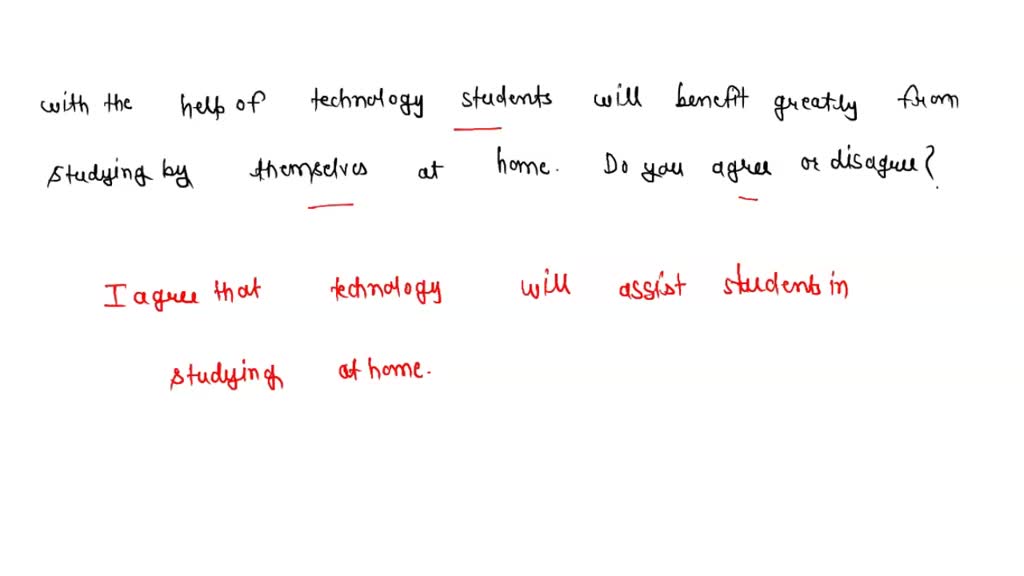 with the help of technology students will benefit greatly from
studying by themselves at home. Do you agree or disagree?
I agree that technology will assist students in
studying at home.